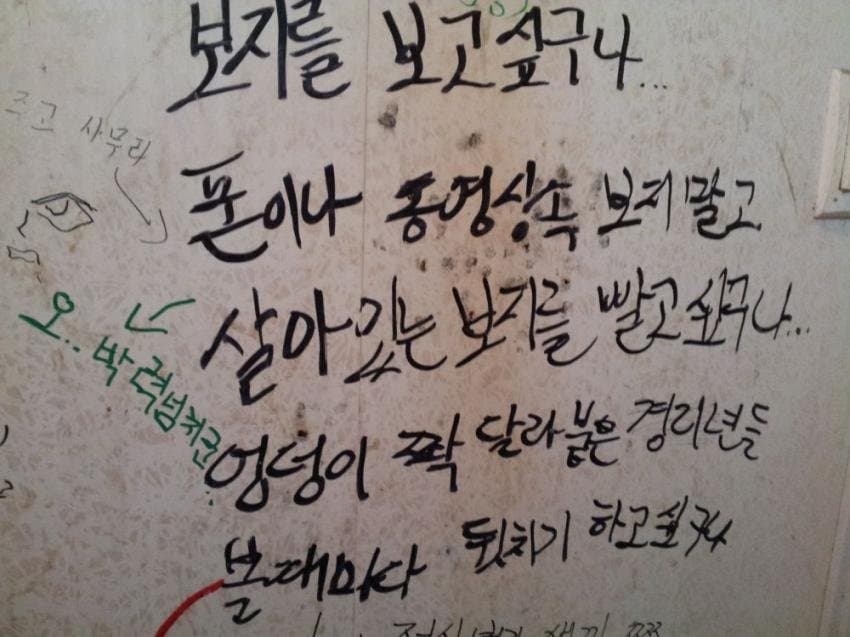 보지를 보고싶구나...
폰이나 동영상속 보지 말고
살아있는 보지를 빨고싶구나...
엉덩이 짝 달라붙은 경리년들
볼때마다 뒷치기 하고싶구나
오.. 박력넘치군..